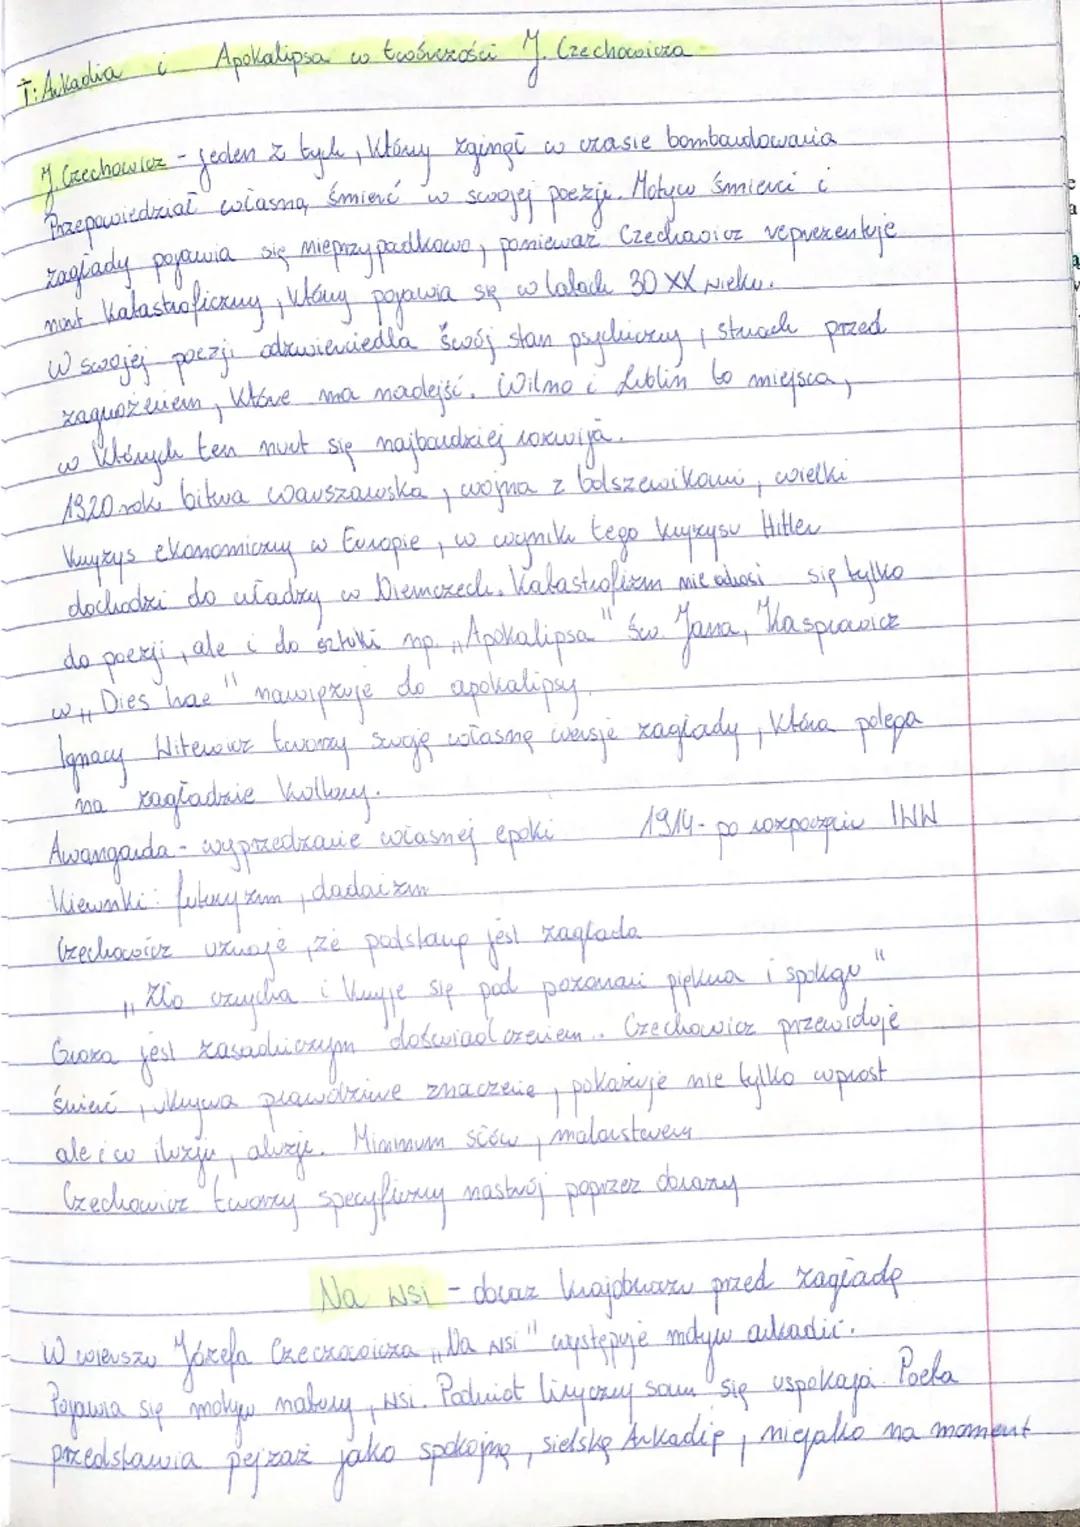 T: Arkadia i Apokalipsa w twórczości J. Czechowicza
J. Czechowicz - jeden z tych, który zginął w czasie bombardowania
Przepowiedział własną śmierć w swojej poezji. Motyw śmierci i
zagłady pojawia się nieprzypadkowo, ponieważ Czechowicz reprezentuje
nurt katastroficzny, który pojawia się w latach 30 XX wieku.
W swojej poezji odzwierciedla swój stan psychiczny, strach przed
zagrożeniem, które ma nadejść. Wilno i Lublin to miejsca,
w których ten nurt się najbardziej rozwija.
1920 roku bitwa warszawska, wojna z bolszewikami, wielki
kryzys ekonomiczny w Europie, w wyniku tego kryzysu Hitler
dochodzi do władzy w Niemczech. Katastrofizm nie odnosi się tylko
do poezji, ale i do sztuki np. „Apokalipsa" św. Jana, Kasprowicz
w „Dies Irae" nawiązuje do apokalipsy.
Ignacy Witkiewicz tworzy swoją własną wersje zagłady, która polega
na zagładzie kultury.
Awangarda - wyprzedzanie własnej epoki 1914 - po rozpoczęciu IWW
Kierunki: futuryzm, dadaizm
Czechowicz uznaje, że podstawą jest zagłada
„Zło czycha i kryje się pod pozorami piękna i spokoju"
Groza jest zasadniczym doświadczeniem. Czechowicz przewiduje
śmierć, ukrywa prawdziwe znaczenie, pokazuje nie tylko wprost
ale i w iluzji, aluzji. Minimum słów, malarstwem
Czechowicz tworzy specyficzny nastrój poprzez obrazy
Na wsi - obraz krajobrazu przed zagładą
W wierszu Józefa Czeczowicza „Na wsi" występuje motyw arkadii.
Pojawia się motyw natury, wsi. Podmiot liryczny sam się uspokaja. Poeta
przedstawia pejzaż jako spokojną, sielską Arkadię, niejako na moment